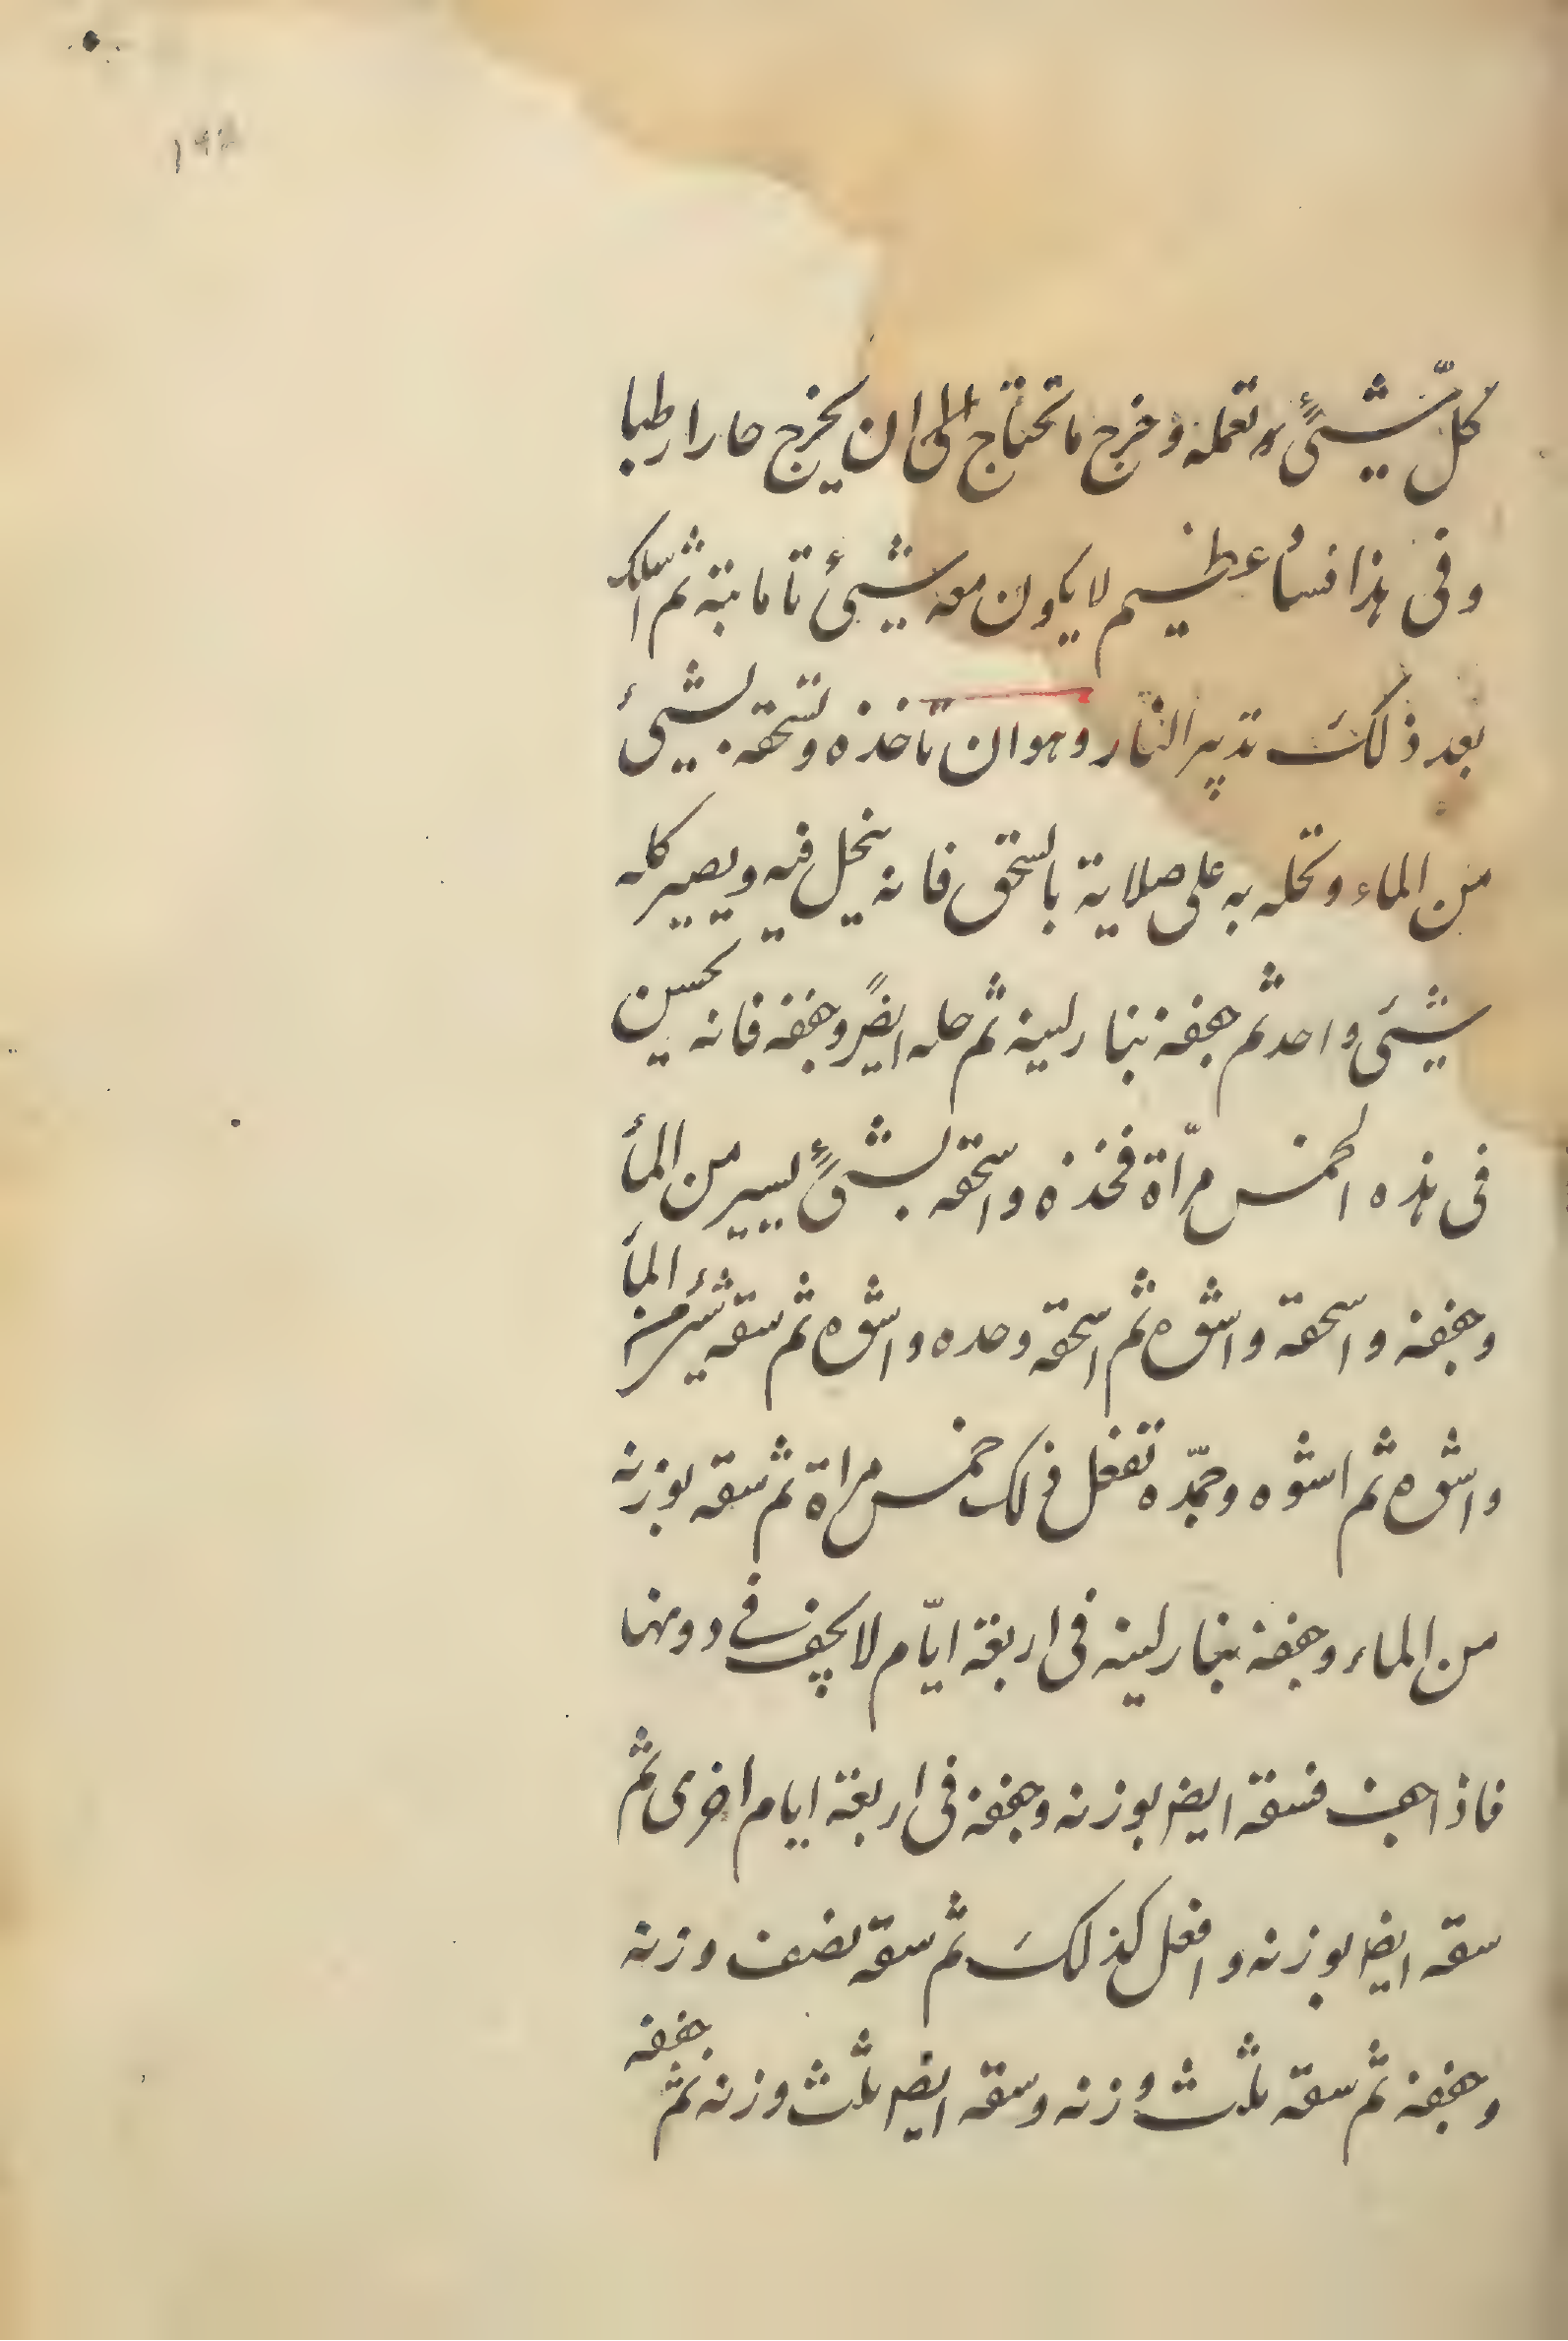 كلّ شيئٍ تعمله وخرج ما تحتاج الى ان يخرج حارا رطبا
وفى هذا فسادُ عظيم لا يكون معه شيئ تاما بتة ثم اسلك
بعد ذلكَ تدبير النار وهو ان تأخذه وتسحقه بشيئ
من الماء وتحله به على صلاية بالسحق فانه ينحل فيه ويصير كله
شيئَ واحد ثم جففه بنار لينه ثم حله ايضً وجففه فانه يحسن
فى هذه الخمس مرّاة فخذه واسحقه بشئٍ يسير من المأ
وجففه واسحقه واشوه ثم اسحقه وحده واشوه ثم سقه شئ من المأ
واشوه ثم اشوه وجمّده تفعل ذلك خمس مراة ثم سقه بوزنه
من الماء وجففه بنار لينه فى اربعة ايّام لا يجف فى دونها
فاذا جف فسقه ايض بوزنه وجففه فى اربعة ايام اخرى ثم
سقه ايضا بوزنه وافعل كذلكَ ثم سقه نصف وزنه
وجففه ثم سقه ثلث وزنه وسقه ايضا ثلث وزنه ثم جففه